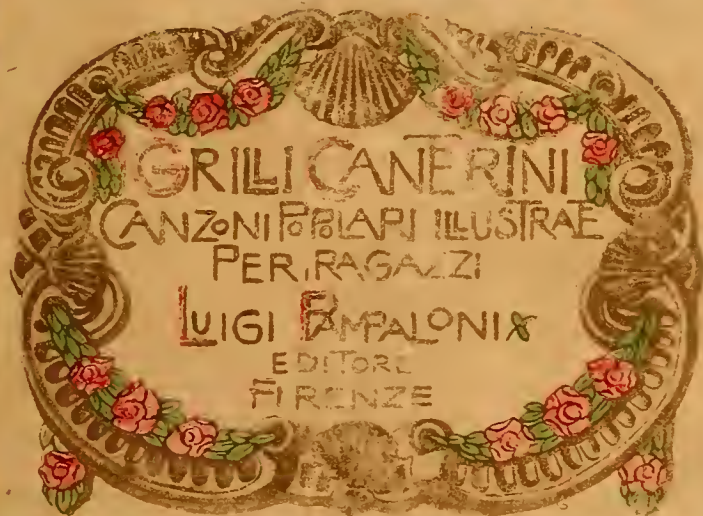 GRILLI CANTERINI
CANZONI POPOLARI ILLUSTRATE
PER RAGAZZI
LUIGI PAMPALONI
EDITORE
FIRENZE